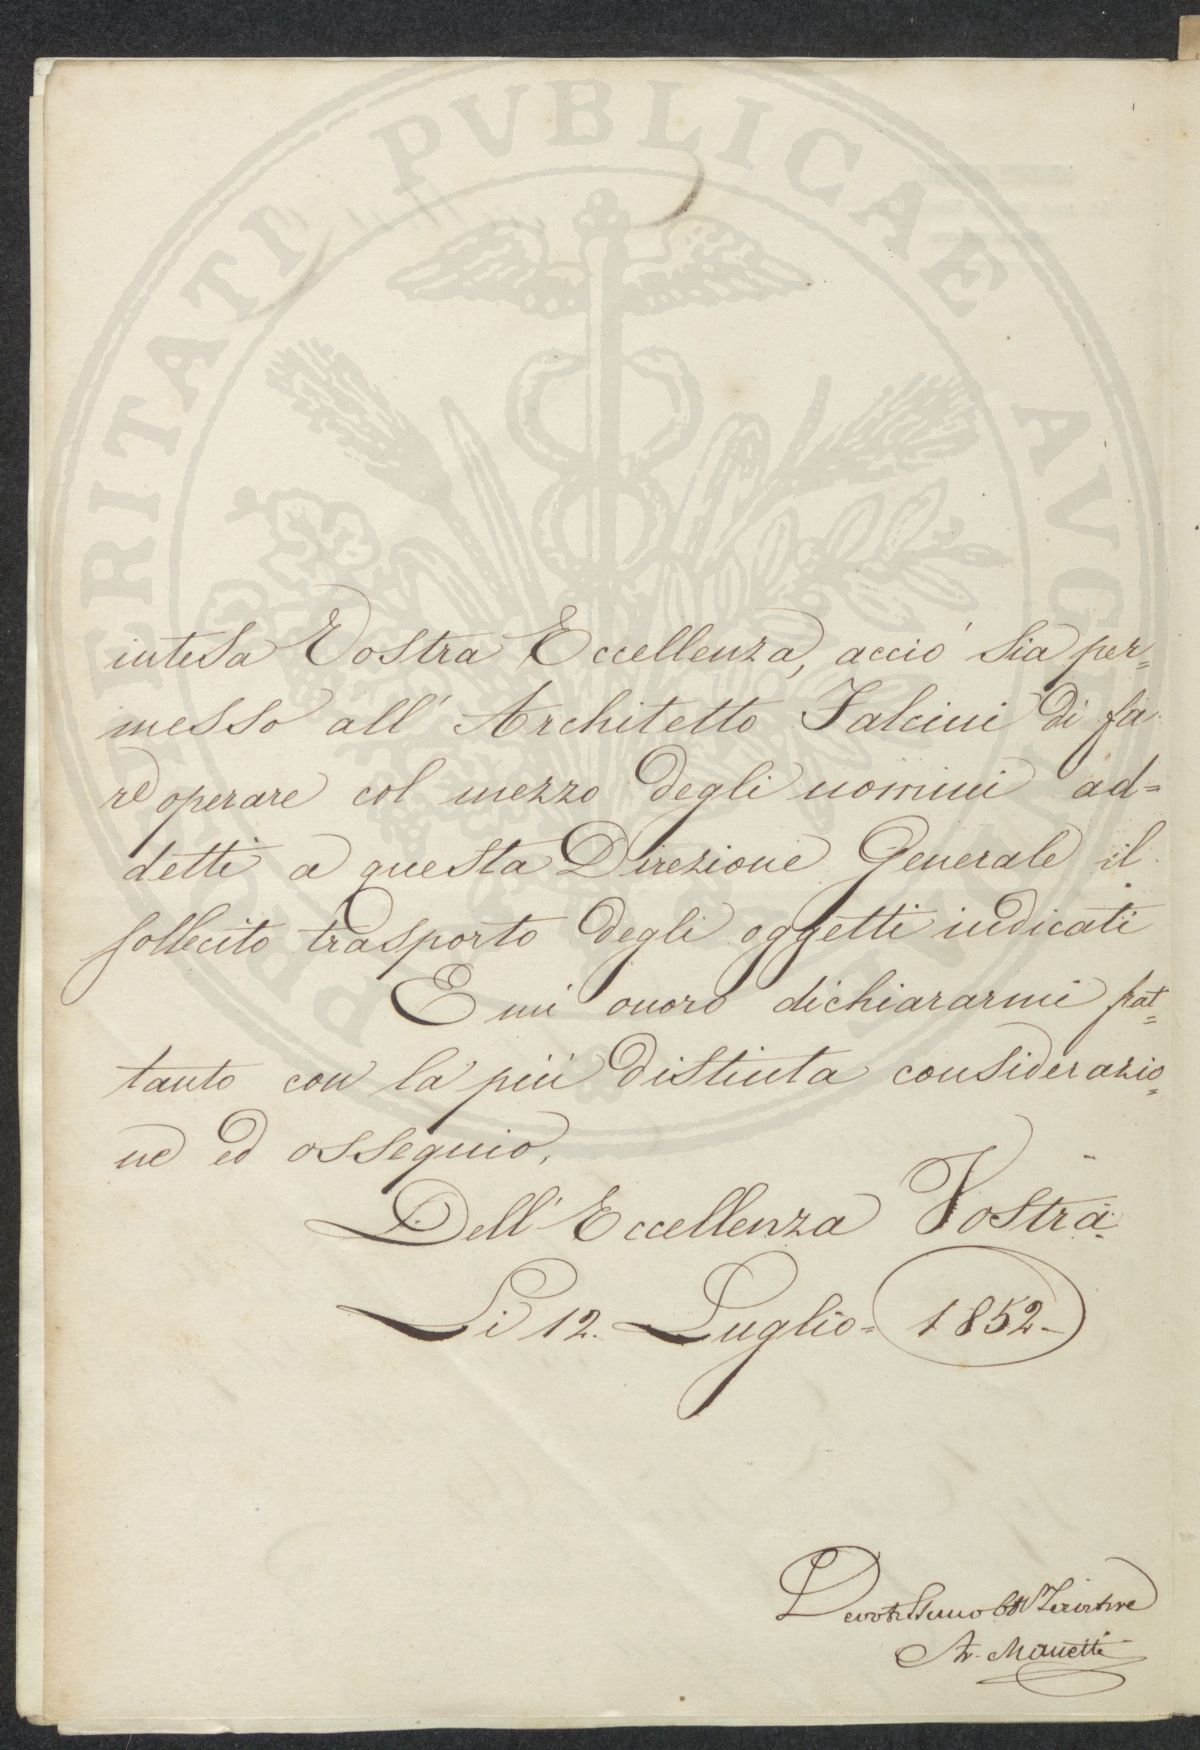 PROSPERITATI PVBLICAE AVGENDAE
intesa Vostra Eccellenza, acciò sia per=
messo all' Architetto Falcini di fa
re operare col mezzo degli uomini ad=
detti a questa Direzione Generale il
sollecito trasporto degli oggetti indicati
E mi onoro dichiararmi frat=
tanto con la più distinta considerazio=
ne ed ossequio,
Dell' Eccellenza Vostra.
Li 12. Luglio= 1852-
Devotissimo Servitore
A. Manetti